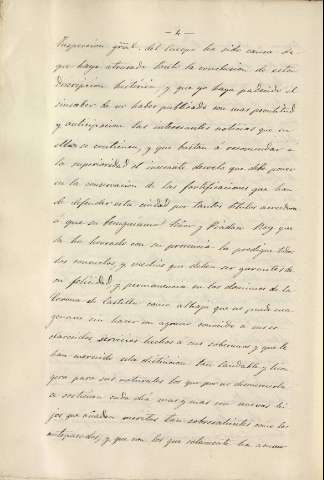 — 4 —
Inspeccion gral. del Cuerpo ha sido causa de
que haya atrasado tanto la conclusion de esta
descripcion historica, y que yo haya padecido el
sinsabor de no haber publicado con mas prontitud
y anticipacion las interesantes noticias que en
ellas se contienen, y que bastan á recomendar á
la superioridad el incesante desvelo que debe poner
en la conservacion de las fortificaciones que han
de defender esta ciudad por tantos titulos acreedora
á que su benignisimo Señor y Piadoso Rey que
la ha honrado con su presencia la prodigue todos
los consuelos, y auxilios que deben ser garantes de
su felicidad y permanencia en los dominios de la
Corona de Castilla como alhaja que no puede ena-
genarse sin hacer un agravio conocido á sus es-
clarecidos servicios hechos á sus soberanos y que le
han merecido esta distincion tan laudable y lison
gera para sus naturales los que por no desmerecerla
se acrisolan cada dia mas y mas con nuevos hi
jos que añaden meritos tan sobresalientes como los
antepasados, y que con los que solamente ha